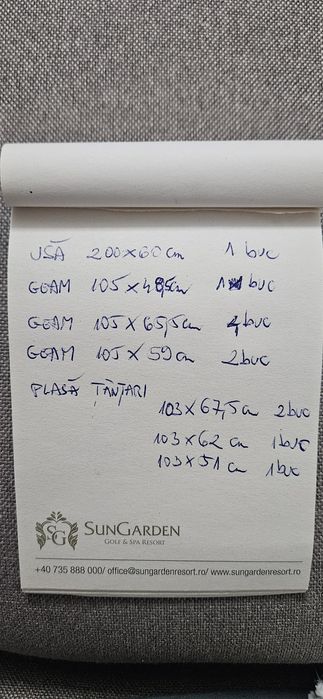 UȘĂ 200x60cm 1 buc
GEAM 105x48,5cm 1 buc
GEAM 105x65,5cm buc
GEAM 105x59cm 2buc
PLASĂ ȚÂNȚARI
103x67,5cm 2buc
103x62 cm 1buc
103x51 cm 1buc
SG SUNGARDEN
GOLF & SPA RESORT
+40 735 888 000/ office@sungardenresort.ro/ www.sungardenresort.ro